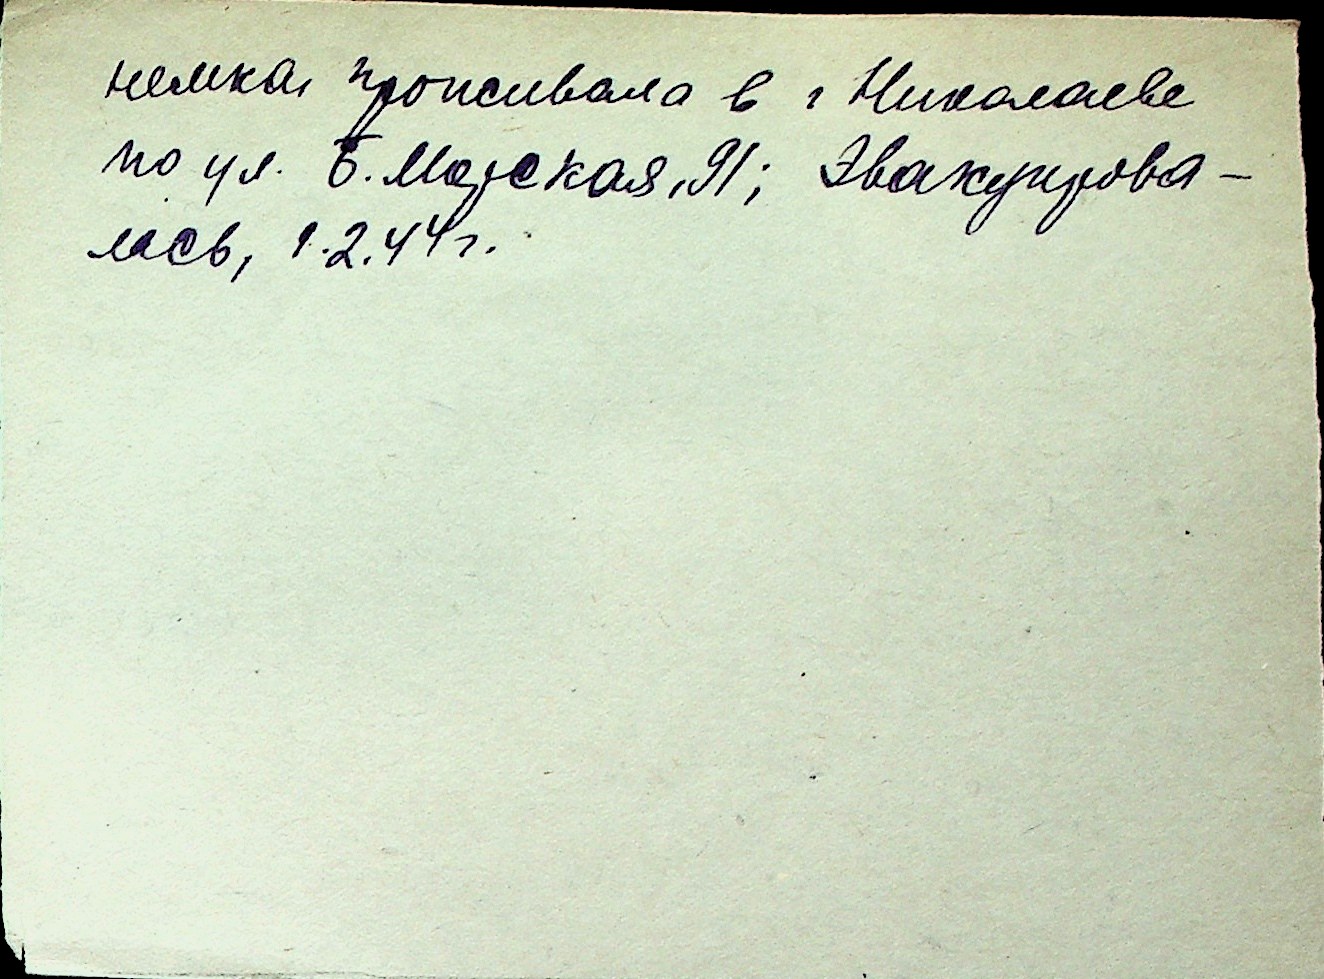 немка, проживала в г Николаеве
по ул. Б. Морская, 91; Эвакуирова-
лась, 1.2.44 г.